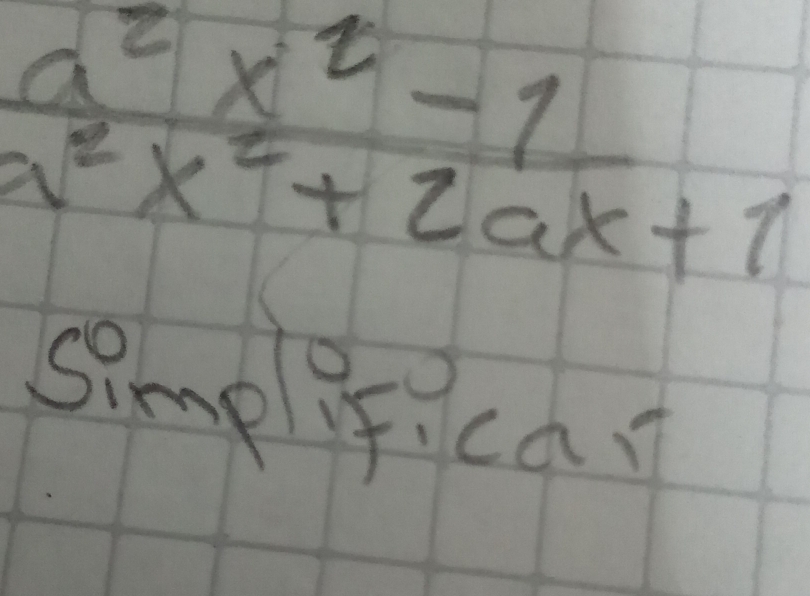 a² x² - 1
a² x² + 2ax + 1
Simplificar